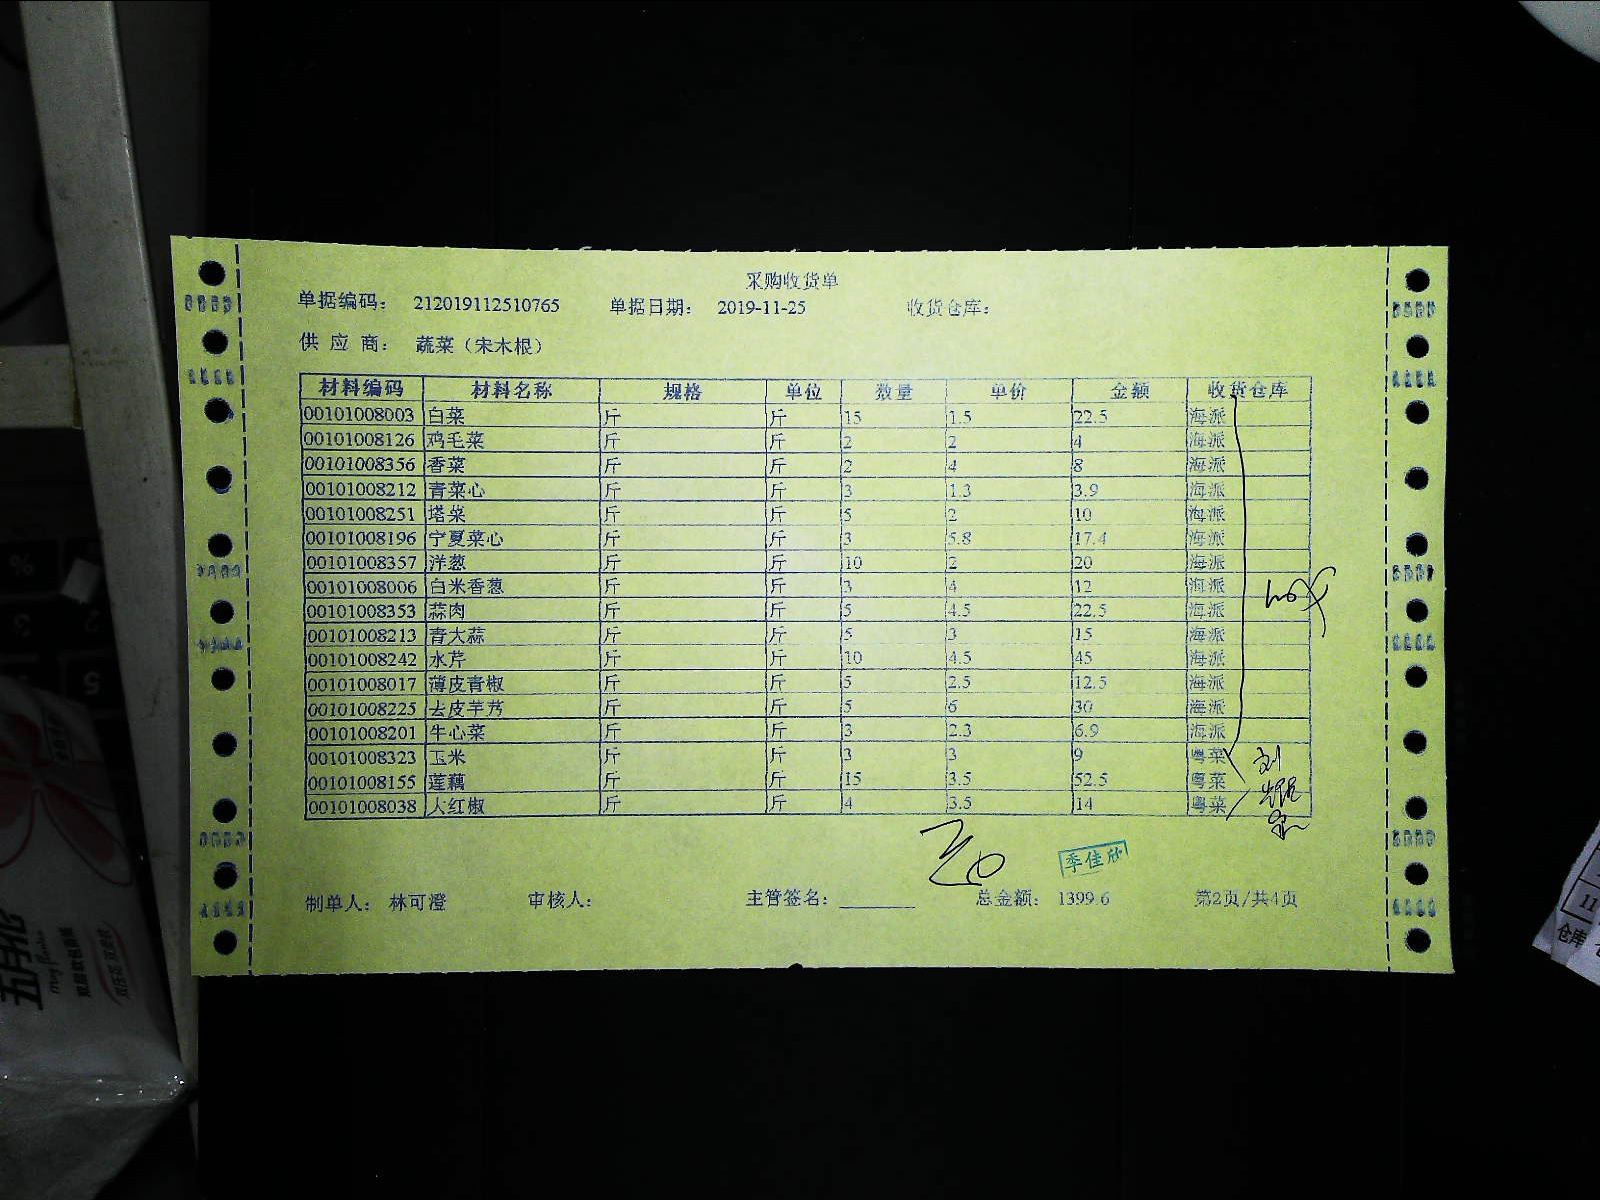 采购收货单
单据编码： 212019112510765 单据日期： 2019-11-25 收货仓库：
供 应 商： 蔬菜（宋木根）
材料编码 材料名称 规格 单位 数量 单价 金额 收货仓库
00101008003 白菜 斤 斤 15 1.5 22.5 海派
00101008126 鸡毛菜 斤 斤 2 2 4 海派
00101008356 香菜 斤 斤 2 4 8 海派
00101008212 青菜心 斤 斤 3 1.3 3.9 海派
00101008251 塔菜 斤 斤 5 2 10 海派
00101008196 宁夏菜心 斤 斤 3 5.8 17.4 海派
00101008357 洋葱 斤 斤 10 2 20 海派
00101008006 白米香葱 斤 斤 3 4 12 海派
00101008353 蒜肉 斤 斤 5 4.5 22.5 海派
00101008213 青大蒜 斤 斤 5 3 15 海派
00101008242 水芹 斤 斤 10 4.5 45 海派
00101008017 薄皮青椒 斤 斤 5 2.5 12.5 海派
00101008225 去皮芋艿 斤 斤 5 6 30 海派
00101008201 牛心菜 斤 斤 3 2.3 6.9 海派
00101008323 玉米 斤 斤 3 3 9 粤菜
00101008155 莲藕 斤 斤 15 3.5 52.5 粤菜
00101008038 大红椒 斤 斤 4 3.5 14 粤菜
季佳欣
制单人： 林可澄 审核人： 主管签名： 总金额： 1399.6 第2页/共4页
五月花